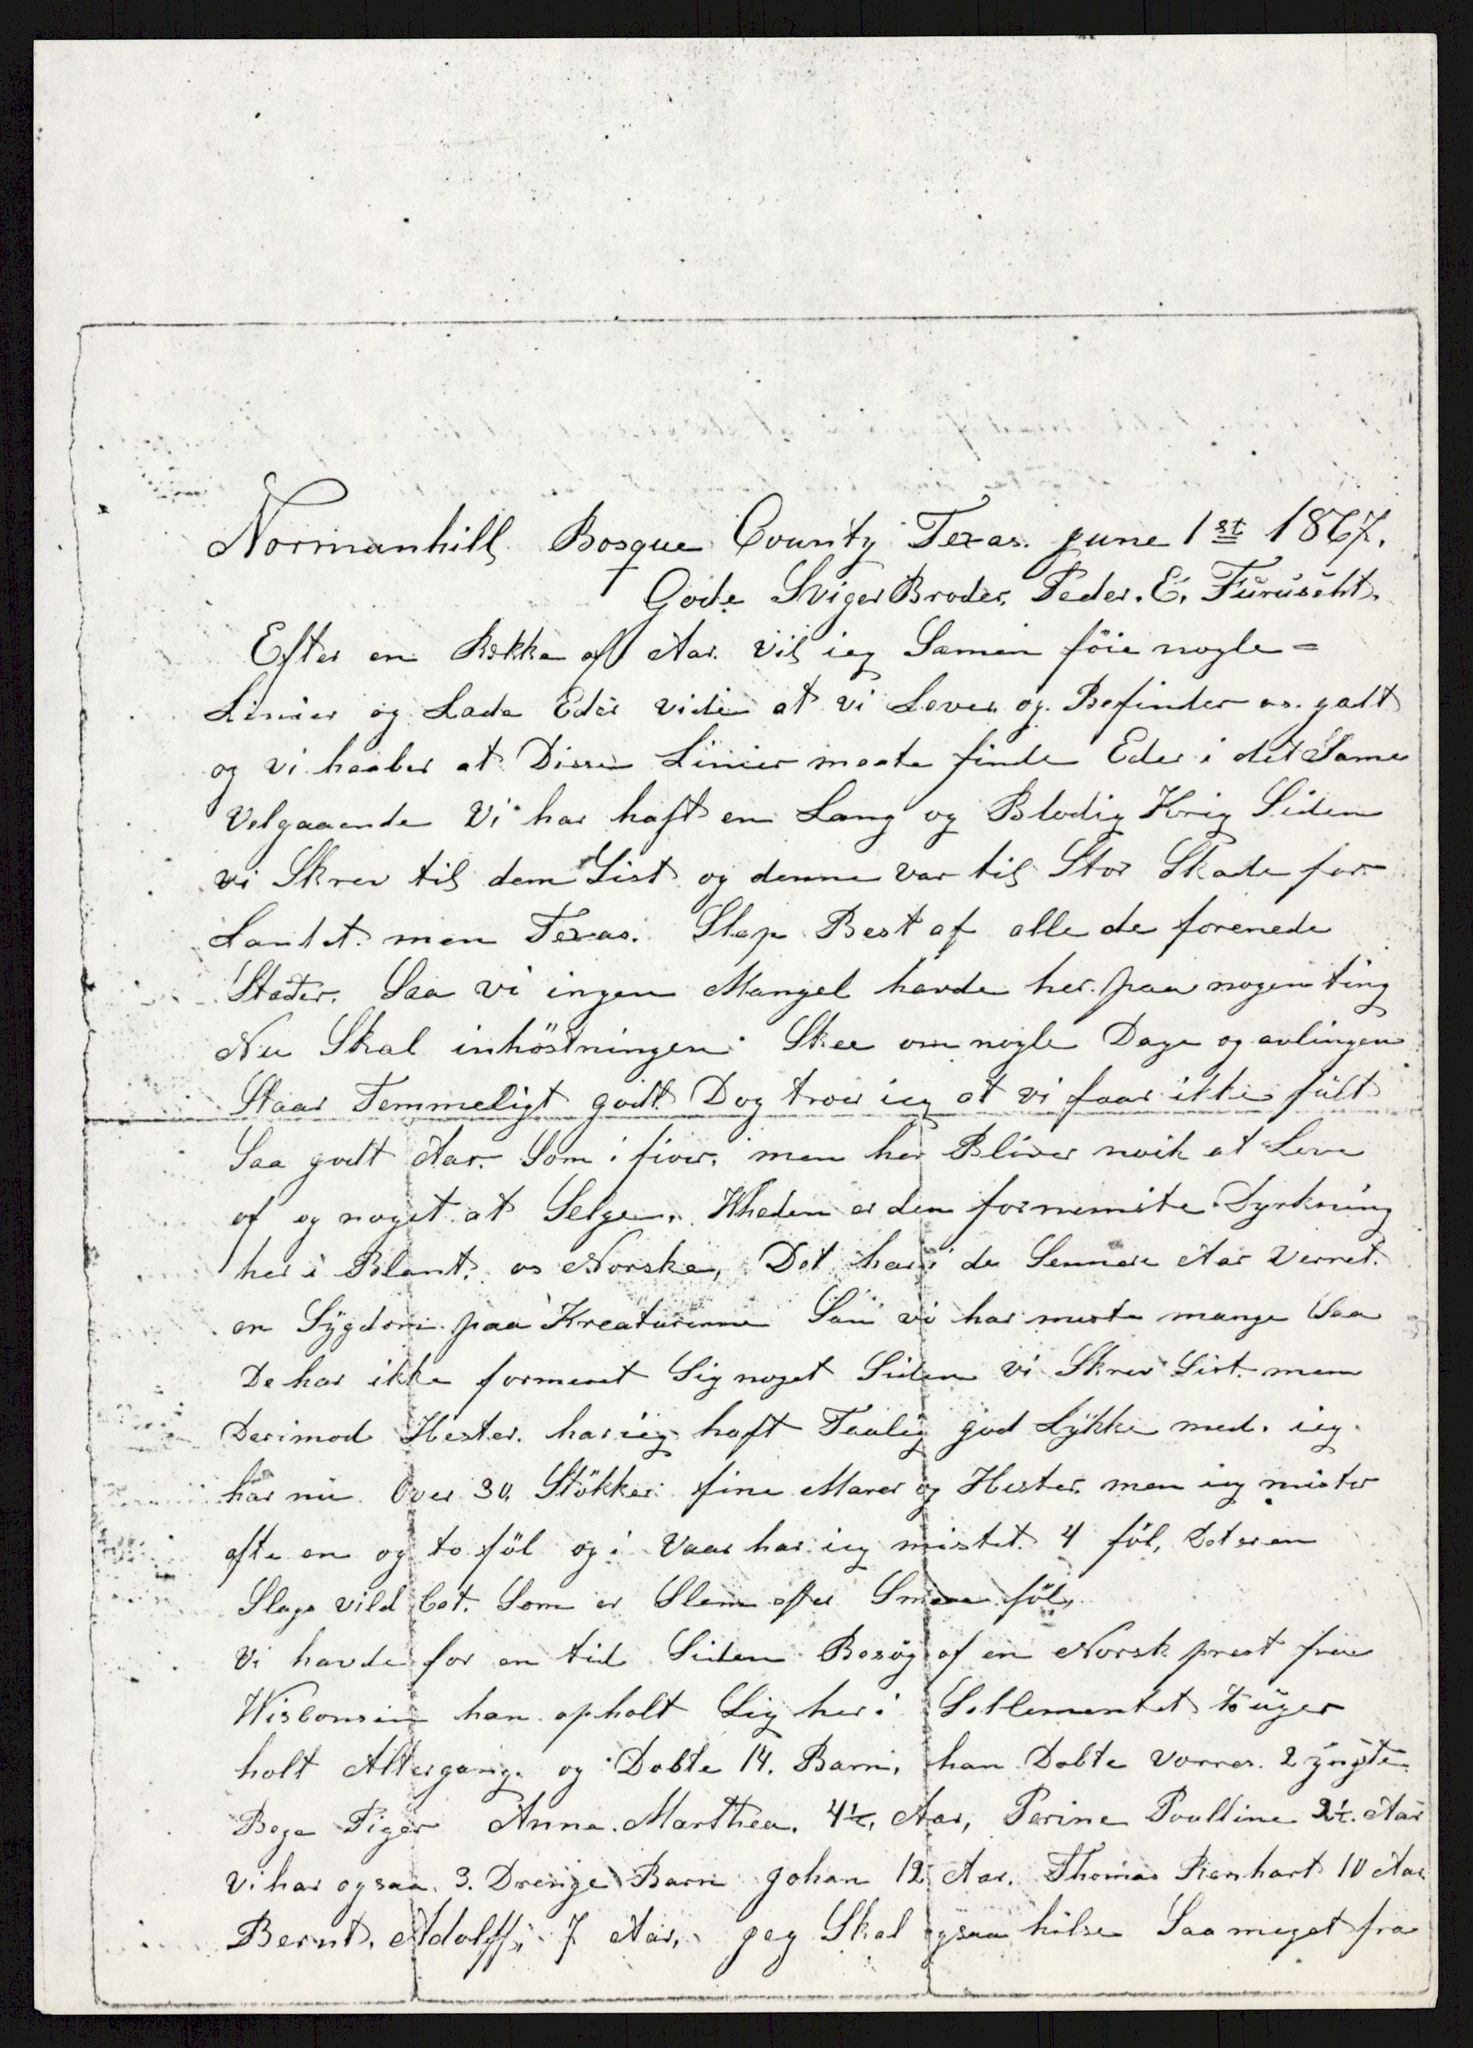 Normanhill Bosque County Texas. June 1st 1867.
Gode Sviger Broder, Peder. E. Furuseht.
Efter en Rekke af Aar. vil ieg Samen föie nogle=
Linier og Lade Eder vide at vi Lever og Befinder os. godt
og vi haaber at Disse Linier maate finde Eder i det Same
Velgaaende Vi har haft en Lang og Blodig Krig Siden
vi Skrev til dem Sist og denne var til Stor Skade for
Landet. men Texas. Slap Best af alle de forenede
Stater. Saa vi ingen Mangel havde her. paa nogen ting
Nu Skal inhöstningen Skee om nogle Dage og avlingen
Staar Temmeligt godt. Dog troer ieg at vi faar ikke fült
Saa godt Aar. Som i fior. men her Bliver nok at Leve
af og noget at Selge. Wheden er den fornemste Dyrkning
her i Blant. os Norske, Det har i de Sennere Aar verret.
en Sygdom paa Kreaturenne Saa vi har miste mange Saa
De har ikke formeret Sig noget Siden vi Skrev Sist. men
Derimod Hester. har ieg haft Taalig god Lykke med. ieg
har nu Over 30. Stökker fine Marer og Hester. men ieg mister
ofte en og to föl og i Vaar har ieg mistet. 4 föl, Det er en
Slags vild Cat. Som er Slem efter Smaa föl,
Vi havde for en tid Siden Besög af en Norsk prest fra
Wisconsin han opholt Sig her i Setlementet to üger
holt Altergang. og Dobte 14. Barn, han Dobte vorres. 2 yngste
Bege Piger Anne. Marthea. 4½, Aar, Perine Poulline 2½. Aar
Vi har ogsaa. 3. Drenge Barn Johan 12 Aar. Thomas Rienhart 10 Aar
Bernt. Adolff, 7 Aar, Jeg Skal ogsaa hilse Saa meget fra